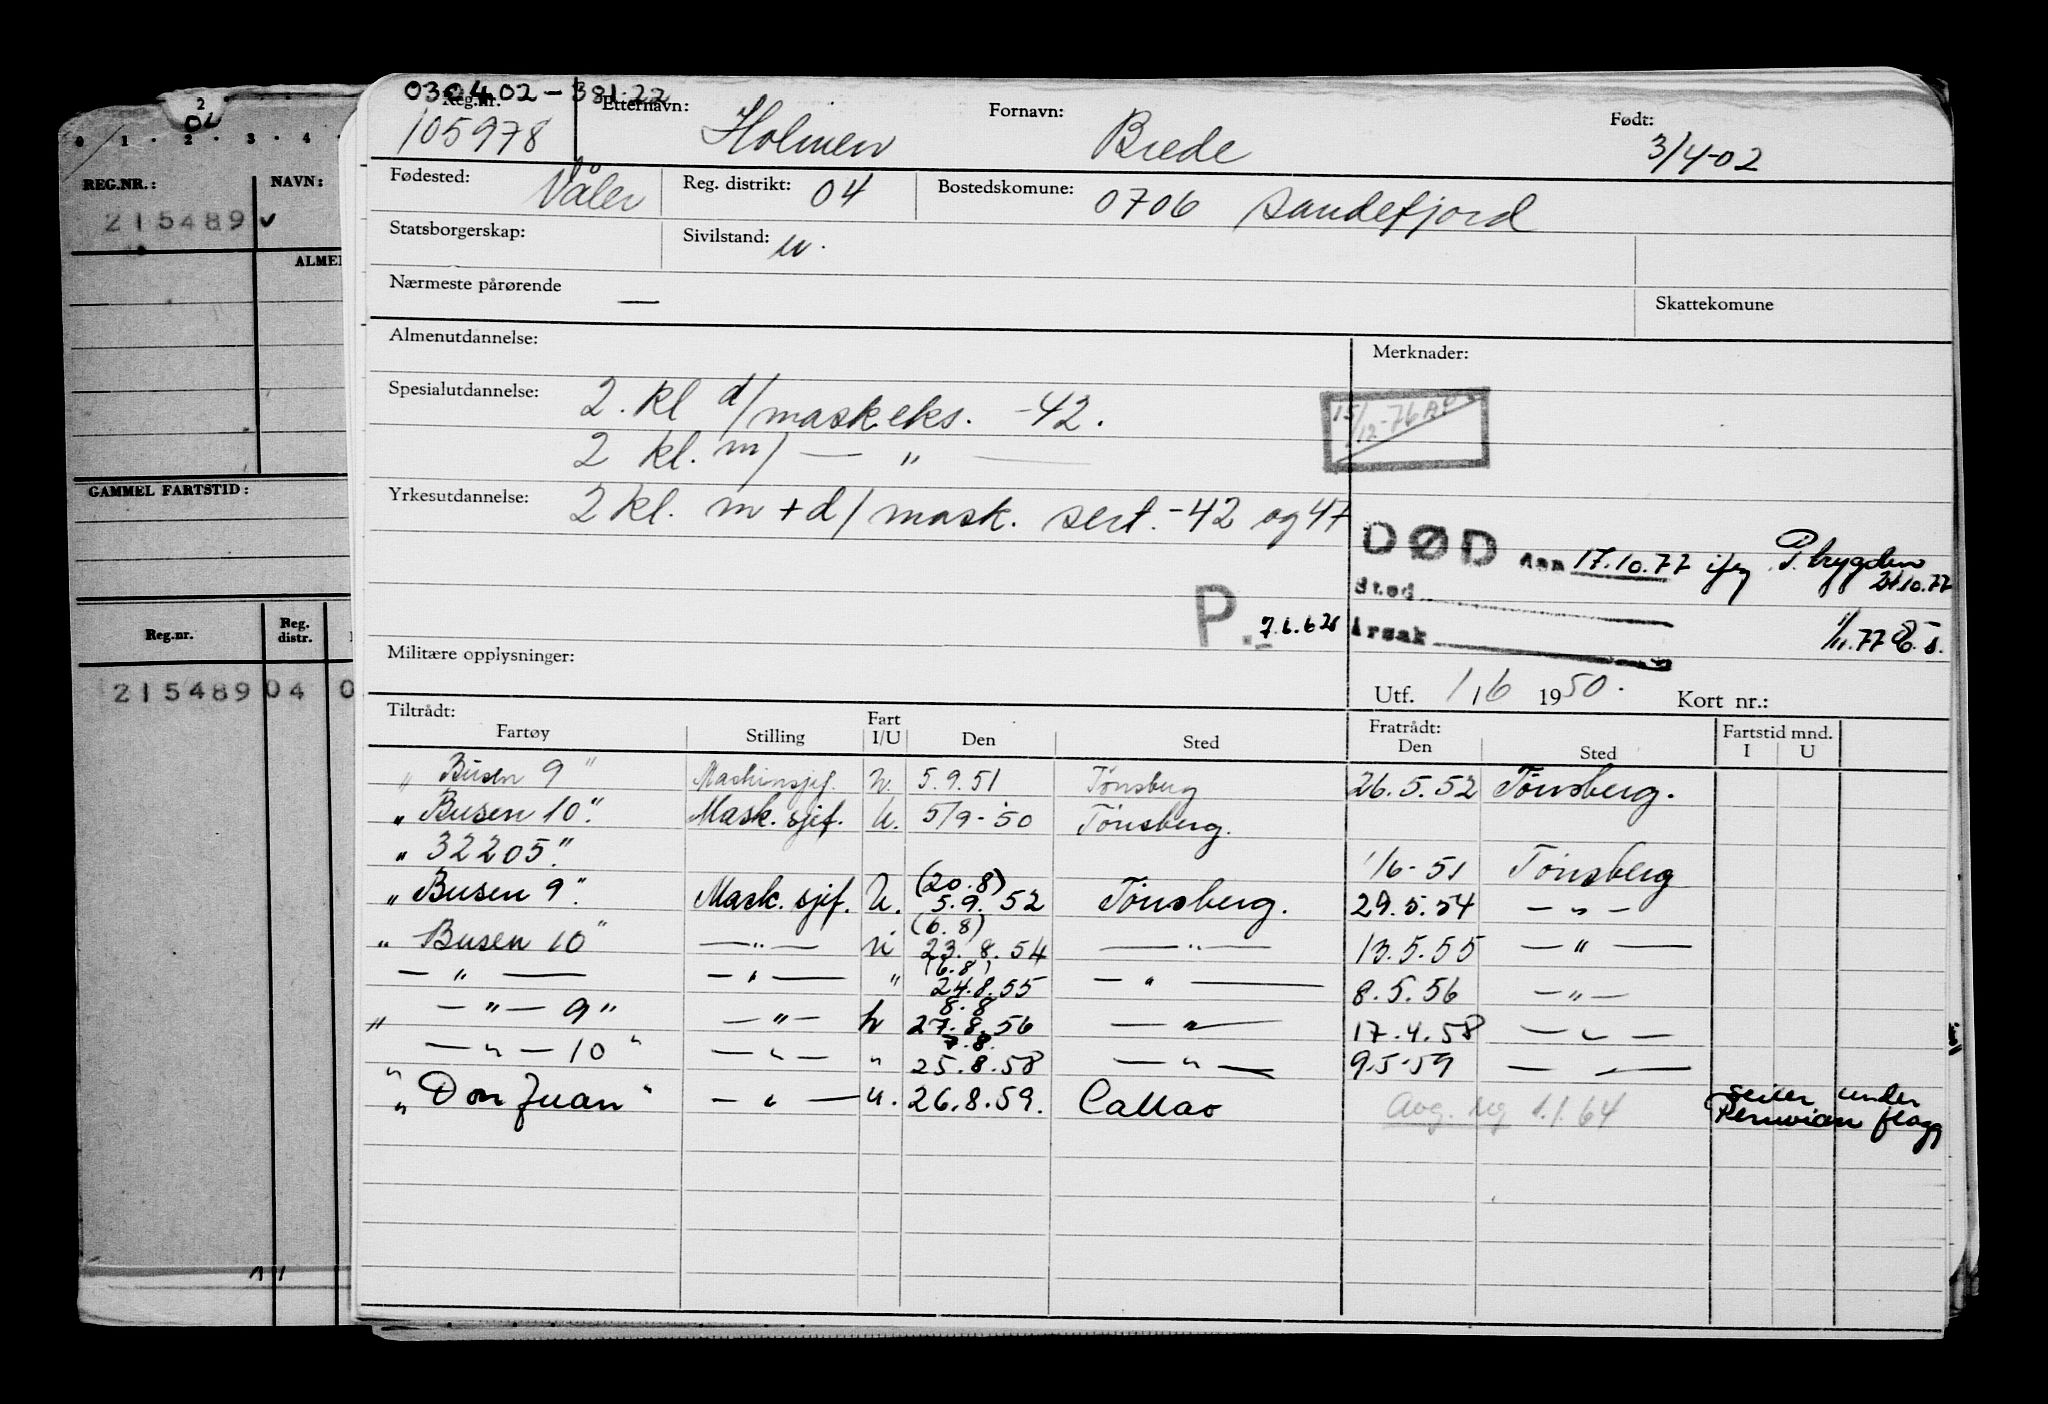 2
04
0 1 · 2 · 3 · 4 ·
REG.NR.: NAVN:
215489 ✓
ALMEN
GAMMEL FARTSTID:
Reg.nr. Reg. distr.
215489 04 0
030402-38122
Reg.nr. Etternavn: Holmen Fornavn: Brede Født: 3/4-02
105978
Fødested: Våler Reg. distrikt: 04 Bostedskomune: 0706 Sandefjord
Statsborgerskap: Sivilstand: u.
Nærmeste pårørende — Skattekomune
Almenutdannelse: Merknader:
Spesialutdannelse: 2. kl d/mask.eks. -42.
15/12-76
2 kl. m/ — " —
Yrkesutdannelse: 2 kl. m+d/mask. sert. -42 og 47
DØD den 17.10.77 ifg P.trygden
21.10.77
Sted
P. 7.6.62 Årsak 1/11.77
Militære opplysninger:
Utf. 1/6 1950. Kort nr.:
Tiltrådt: Fartøy Stilling Fart I/U Den Sted Fratrådt: Den Sted Fartstid mnd. I U
"Busen 9" Maskinsjef. U. 5.9.51 Tönsberg 26.5.52 Tönsberg.
"Busen 10". Mask. sjef. U. 5/9-50 Tönsberg.
"32205." 1/6-51 Tönsberg
"Busen 9". Mask. sjef. U. (20.8) 5.9.52 Tönsberg. 29.5.54 — " —
"Busen 10" — " — U (6.8) 23.8.54 — " — 13.5.55 — " —
— " — — " — " (6.8) 24.8.55 — " — 8.5.56 — " —
" — " — 9" — " — U 8.8 27.8.56 — " — 17.4.58 — " —
" — " — 10" — " — " 7.8. 25.8.58 — " — 9.5.59 — " —
"Don Juan" — " — U. 26.8.59. Callao Avg. reg 1.1.64 seiler under
Peruvian flagg